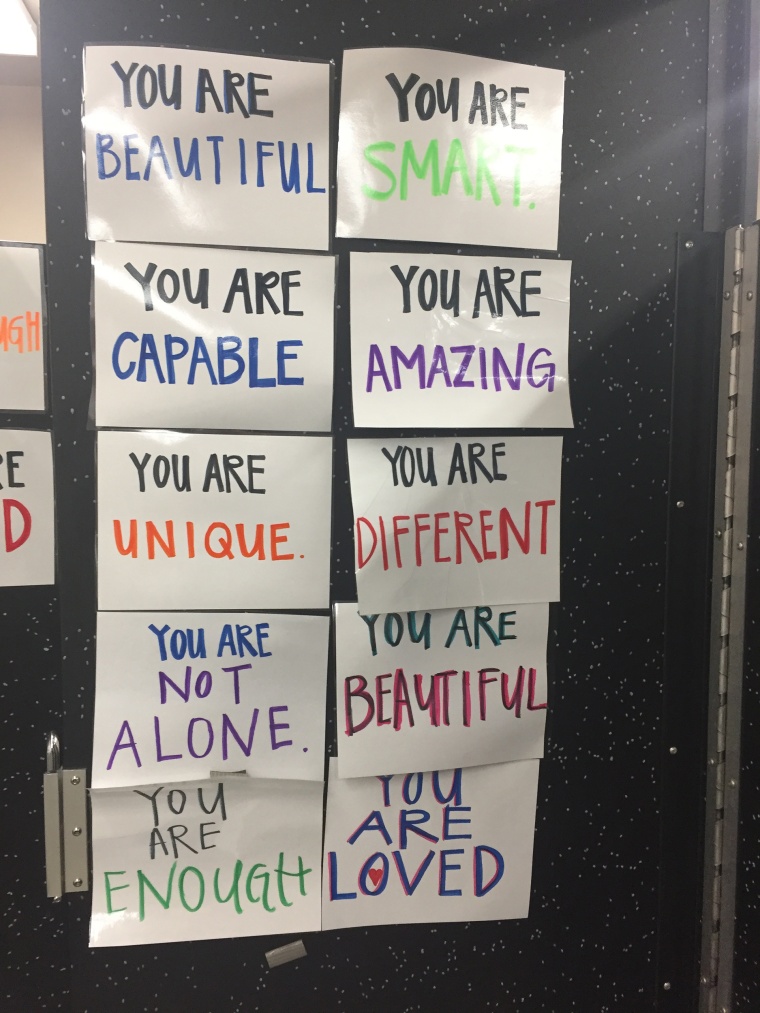 YOU ARE
BEAUTIFUL
YOU ARE
SMART.
YOU ARE
CAPABLE
YOU ARE
AMAZING
YOU ARE
UNIQUE.
YOU ARE
DIFFERENT
YOU ARE
NOT
ALONE.
YOU ARE
BEAUTIFUL
YOU
ARE
ENOUGH
YOU
ARE
LOVED